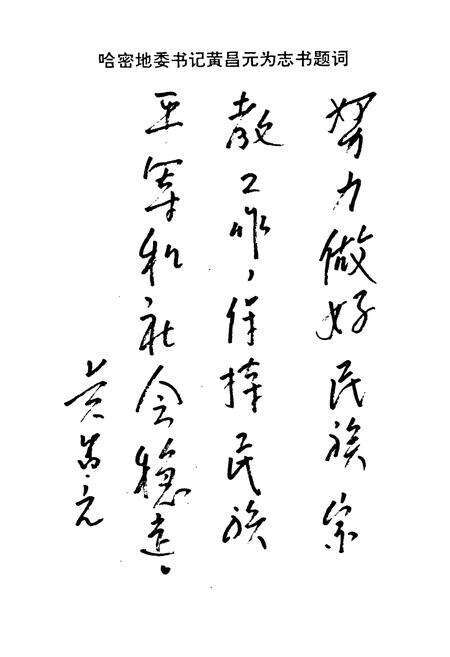 哈密地委书记黄昌元为志书题词
努力做好民族宗
教工作,保持民族
团结和社会稳定。
黄昌元